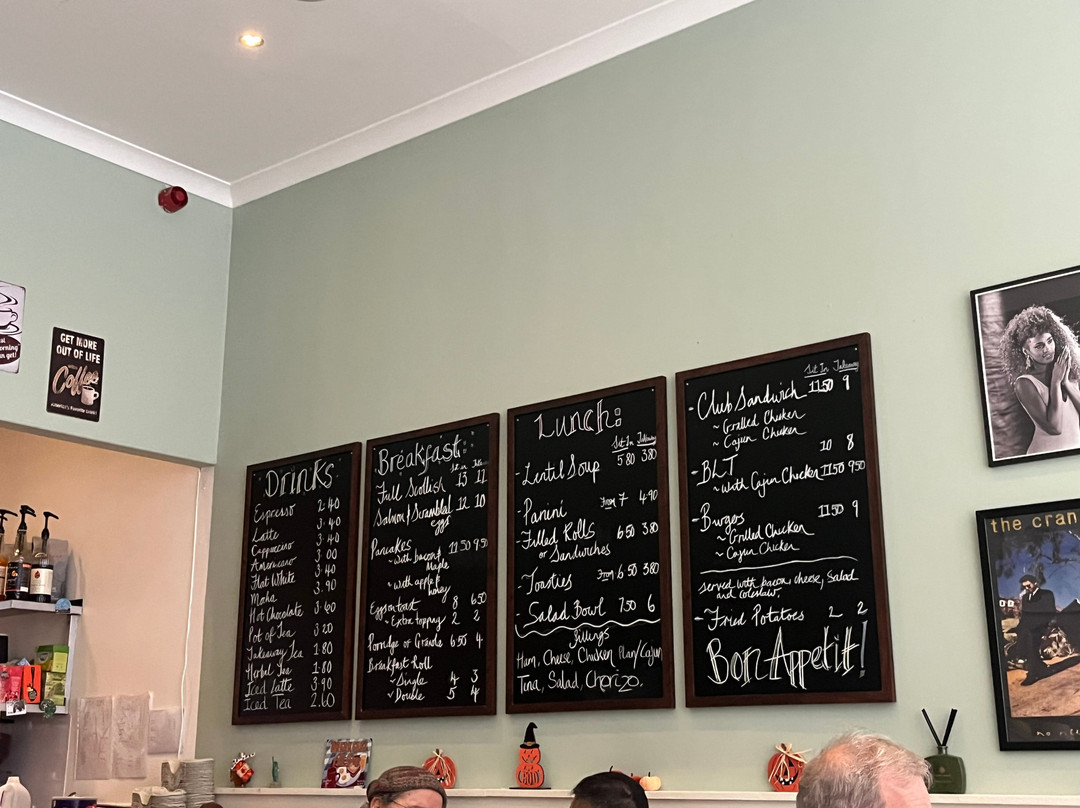 GET MORE
OUT OF LIFE
Coffee
Drinks
Espresso 2.40
Latte 3.40
Cappuccino 3.40
Americano 3.00
Flat White 3.40
Moha 3.90
Hot Chocolate 3.60
Pot of Tea 3.20
Takeaway Tea 1.80
Herbal Tea 1.80
Iced Latte 3.90
Iced Tea 2.60
Breakfast:
Full Scottish 13 11
Salmon / Scrambled 12 10
eggs
Pancakes 11.50 9.50
~ with bacon &
Maple
~ with apple &
honey
Eggs on toast 8 6.50
~ Extra topping 2 2
Porridge or Granola 6.50 4
Breakfast Roll
~ Single 4 3
~ Double 5 4
Lunch:
Sit In Takeaway
- Lentil Soup 5.80 3.80
- Panini From 7 4.90
- Filled Rolls 6.50 3.80
or Sandwiches
- Toasties From 6.50 3.80
- Salad Bowl 7.50 6
Fillings
Ham, Cheese, Chicken Plan/Cajun
Tuna, Salad, Chorizo.
Sit In Takeaway
- Club Sandwich 11.50 9
~ Grilled Chicken
~ Cajun Chicken
- BLT 10 8
~ with Cajun Chicken 11.50 9.50
- Burgers 11.50 9
~ Grilled Chicken
~ Cajun Chicken
served with bacon, cheese, Salad
and coleslaw.
- Fried Potatoes 2 2
Bon Appetit!
the cran
no n